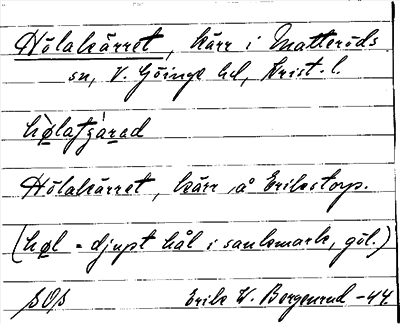 Hölakärret, kärr i Matteröds
sn, V. Göinge hd, Krist. l.
Hölakärret, kärr å Erikstorp.
(høl = djupt hål i sankmark, göl.)
SOS Erik W. Borgenrud -44.